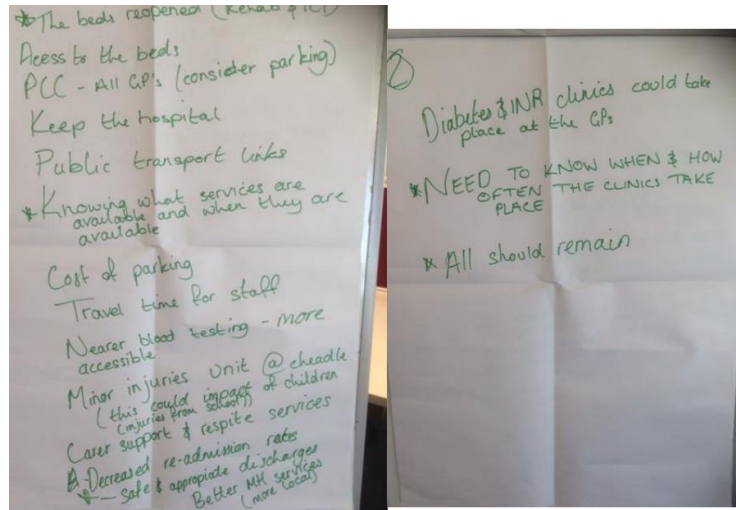 * The beds reopened (Rehab &
Acess to the beds
PCC - All GP's (consider parking)
Keep the hospital
Public transport links
* Knowing what services are
available and when they are
available
Cost of parking
Travel time for staff
Nearer blood testing - more
accessible
Minor injuries Unit @ cheadle
(this could impact of children
(injuries from school))
Carer support & respite services
Decreased re-admission rates
* - Safe & appropiate discharges
Better MH services
(more local)
2
Diabetes & INR clinics could take
place at the GPs
* NEED TO KNOW WHEN & HOW
OFTEN THE CLINICS TAKE
PLACE
* All should remain